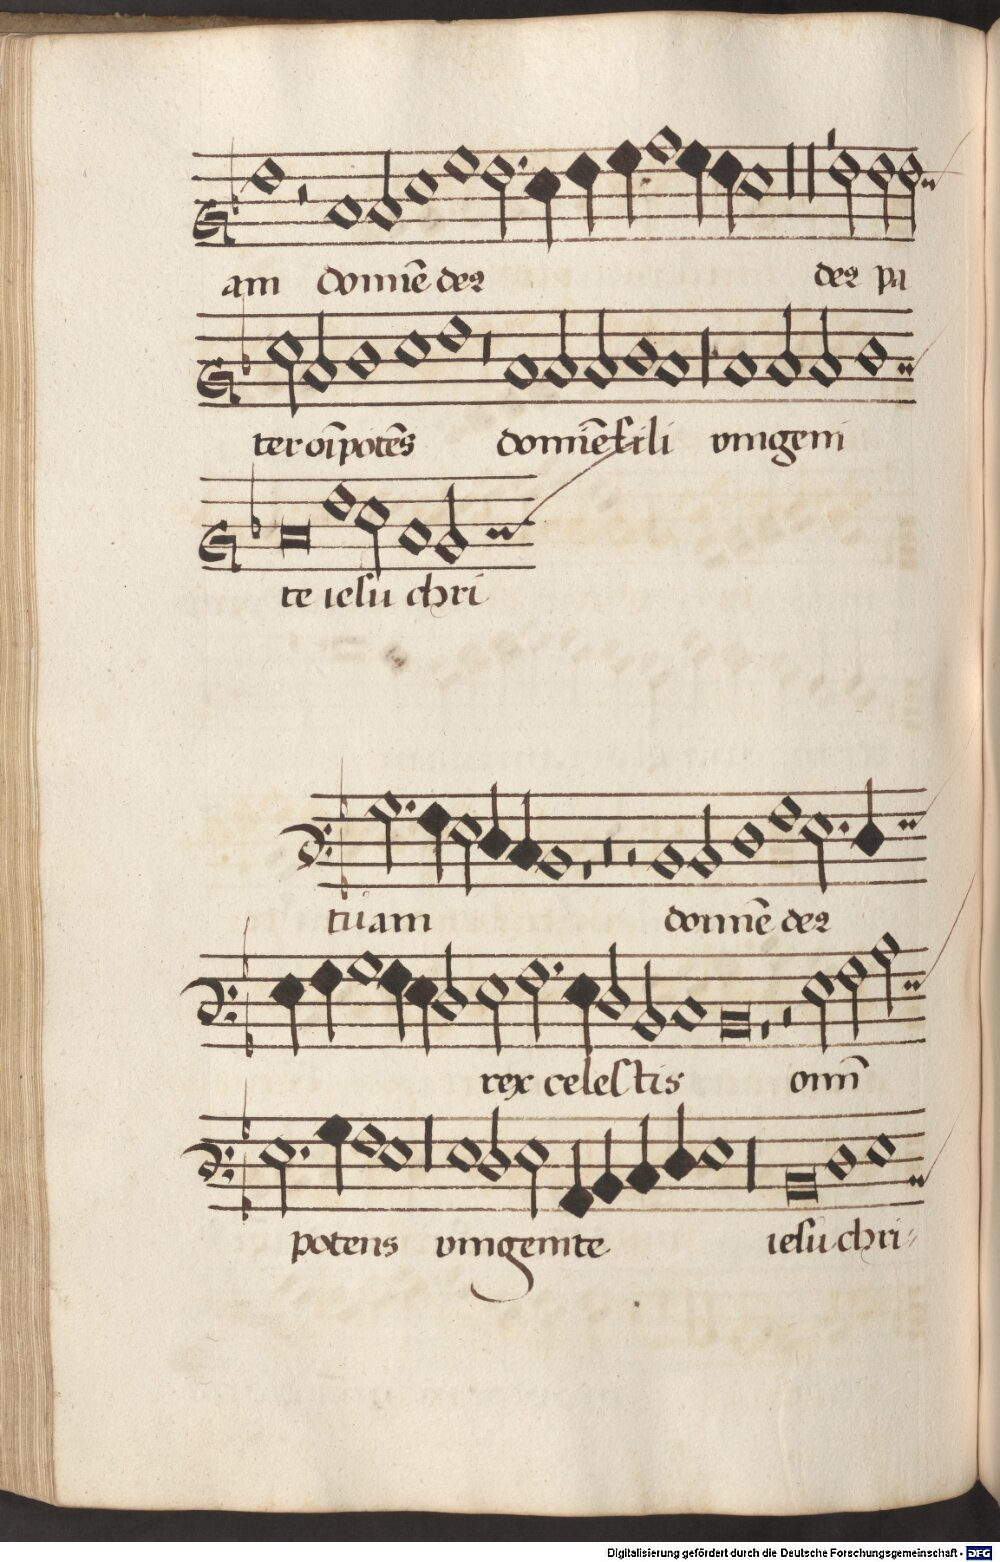 am domīe deꝰ deꝰ pa
ter oīpotēs domīe fili vnigeni
te iesu chri
tuam domīe deꝰ
rex celestis omī
potens vnigenite iesu chri-
Digitalisierung gefördert durch die Deutsche Forschungsgemeinschaft - DFG